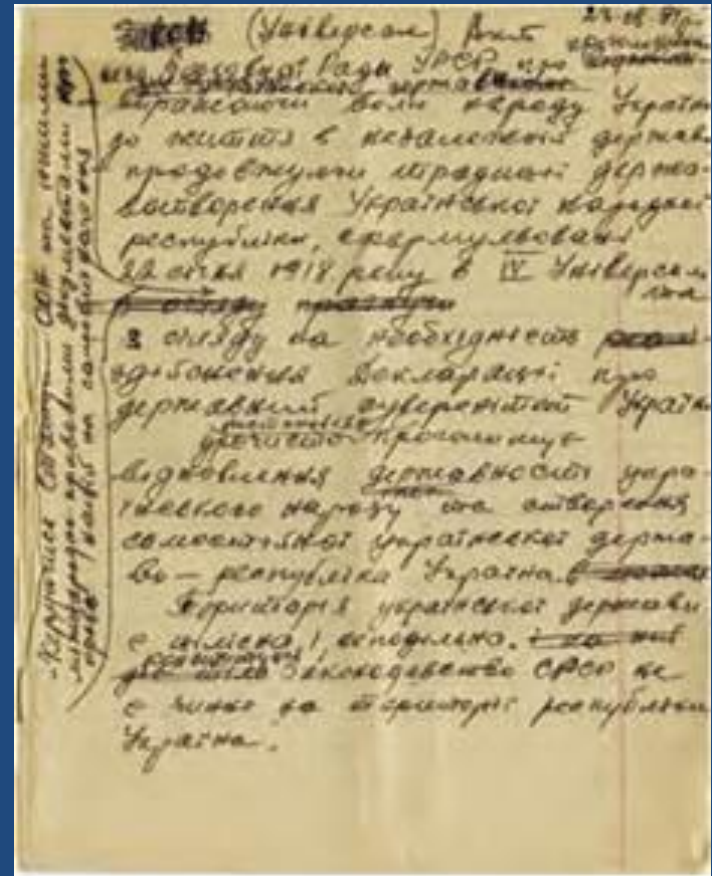 (Універсал) Акт
Верховної Ради УРСР про
виражаючи волю народу України
до життя в незалежній державі
продовжуючи традиції держа-
вотворення Української народної
республіки, сформульовані
22 січня 1918 року в IV Універсалі
з огляду на необхідність
здійснення Декларації про
державний суверенітет України
урочисто проголошує
відновлення державності укра-
їнського народу та створення
самостійної української держа-
ви — республіка Україна.
Територія української держави
є цілісна і неподільна.
законодавство СРСР не
є чинне на території республіки
Україна.
Керуючись Статутом ООН та іншими
міжнародно правовими документами про
право націй на самовизначення